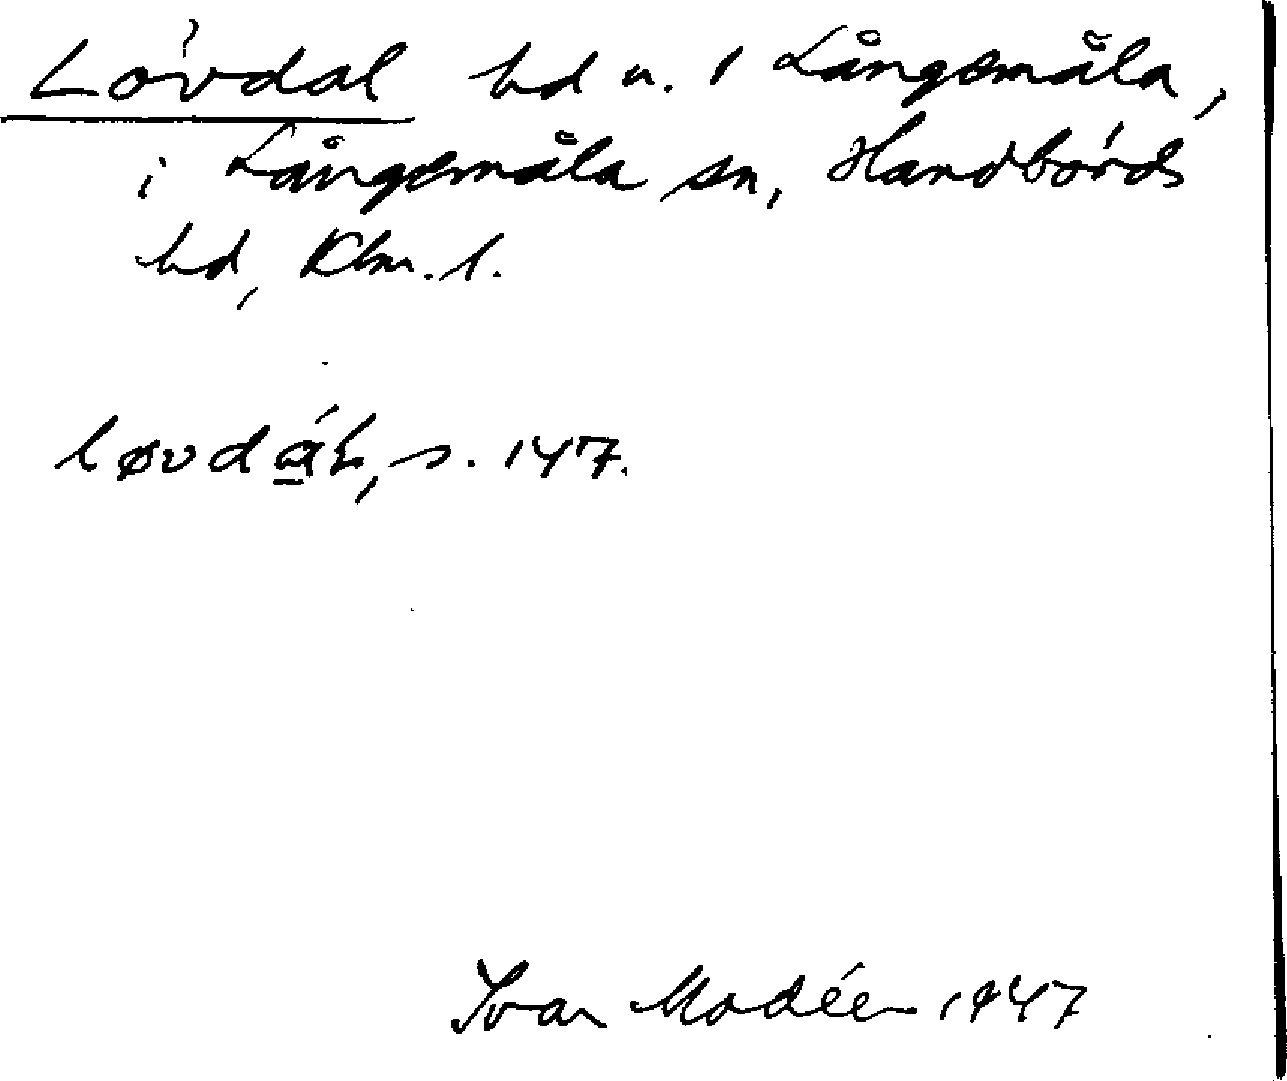 Lövdal hd u. 1 Långemåla,
i Långemåla sn, Handbörds
hd, Klm. l.
løvdáɫ, s. 147.
Ivar Modéer 1947